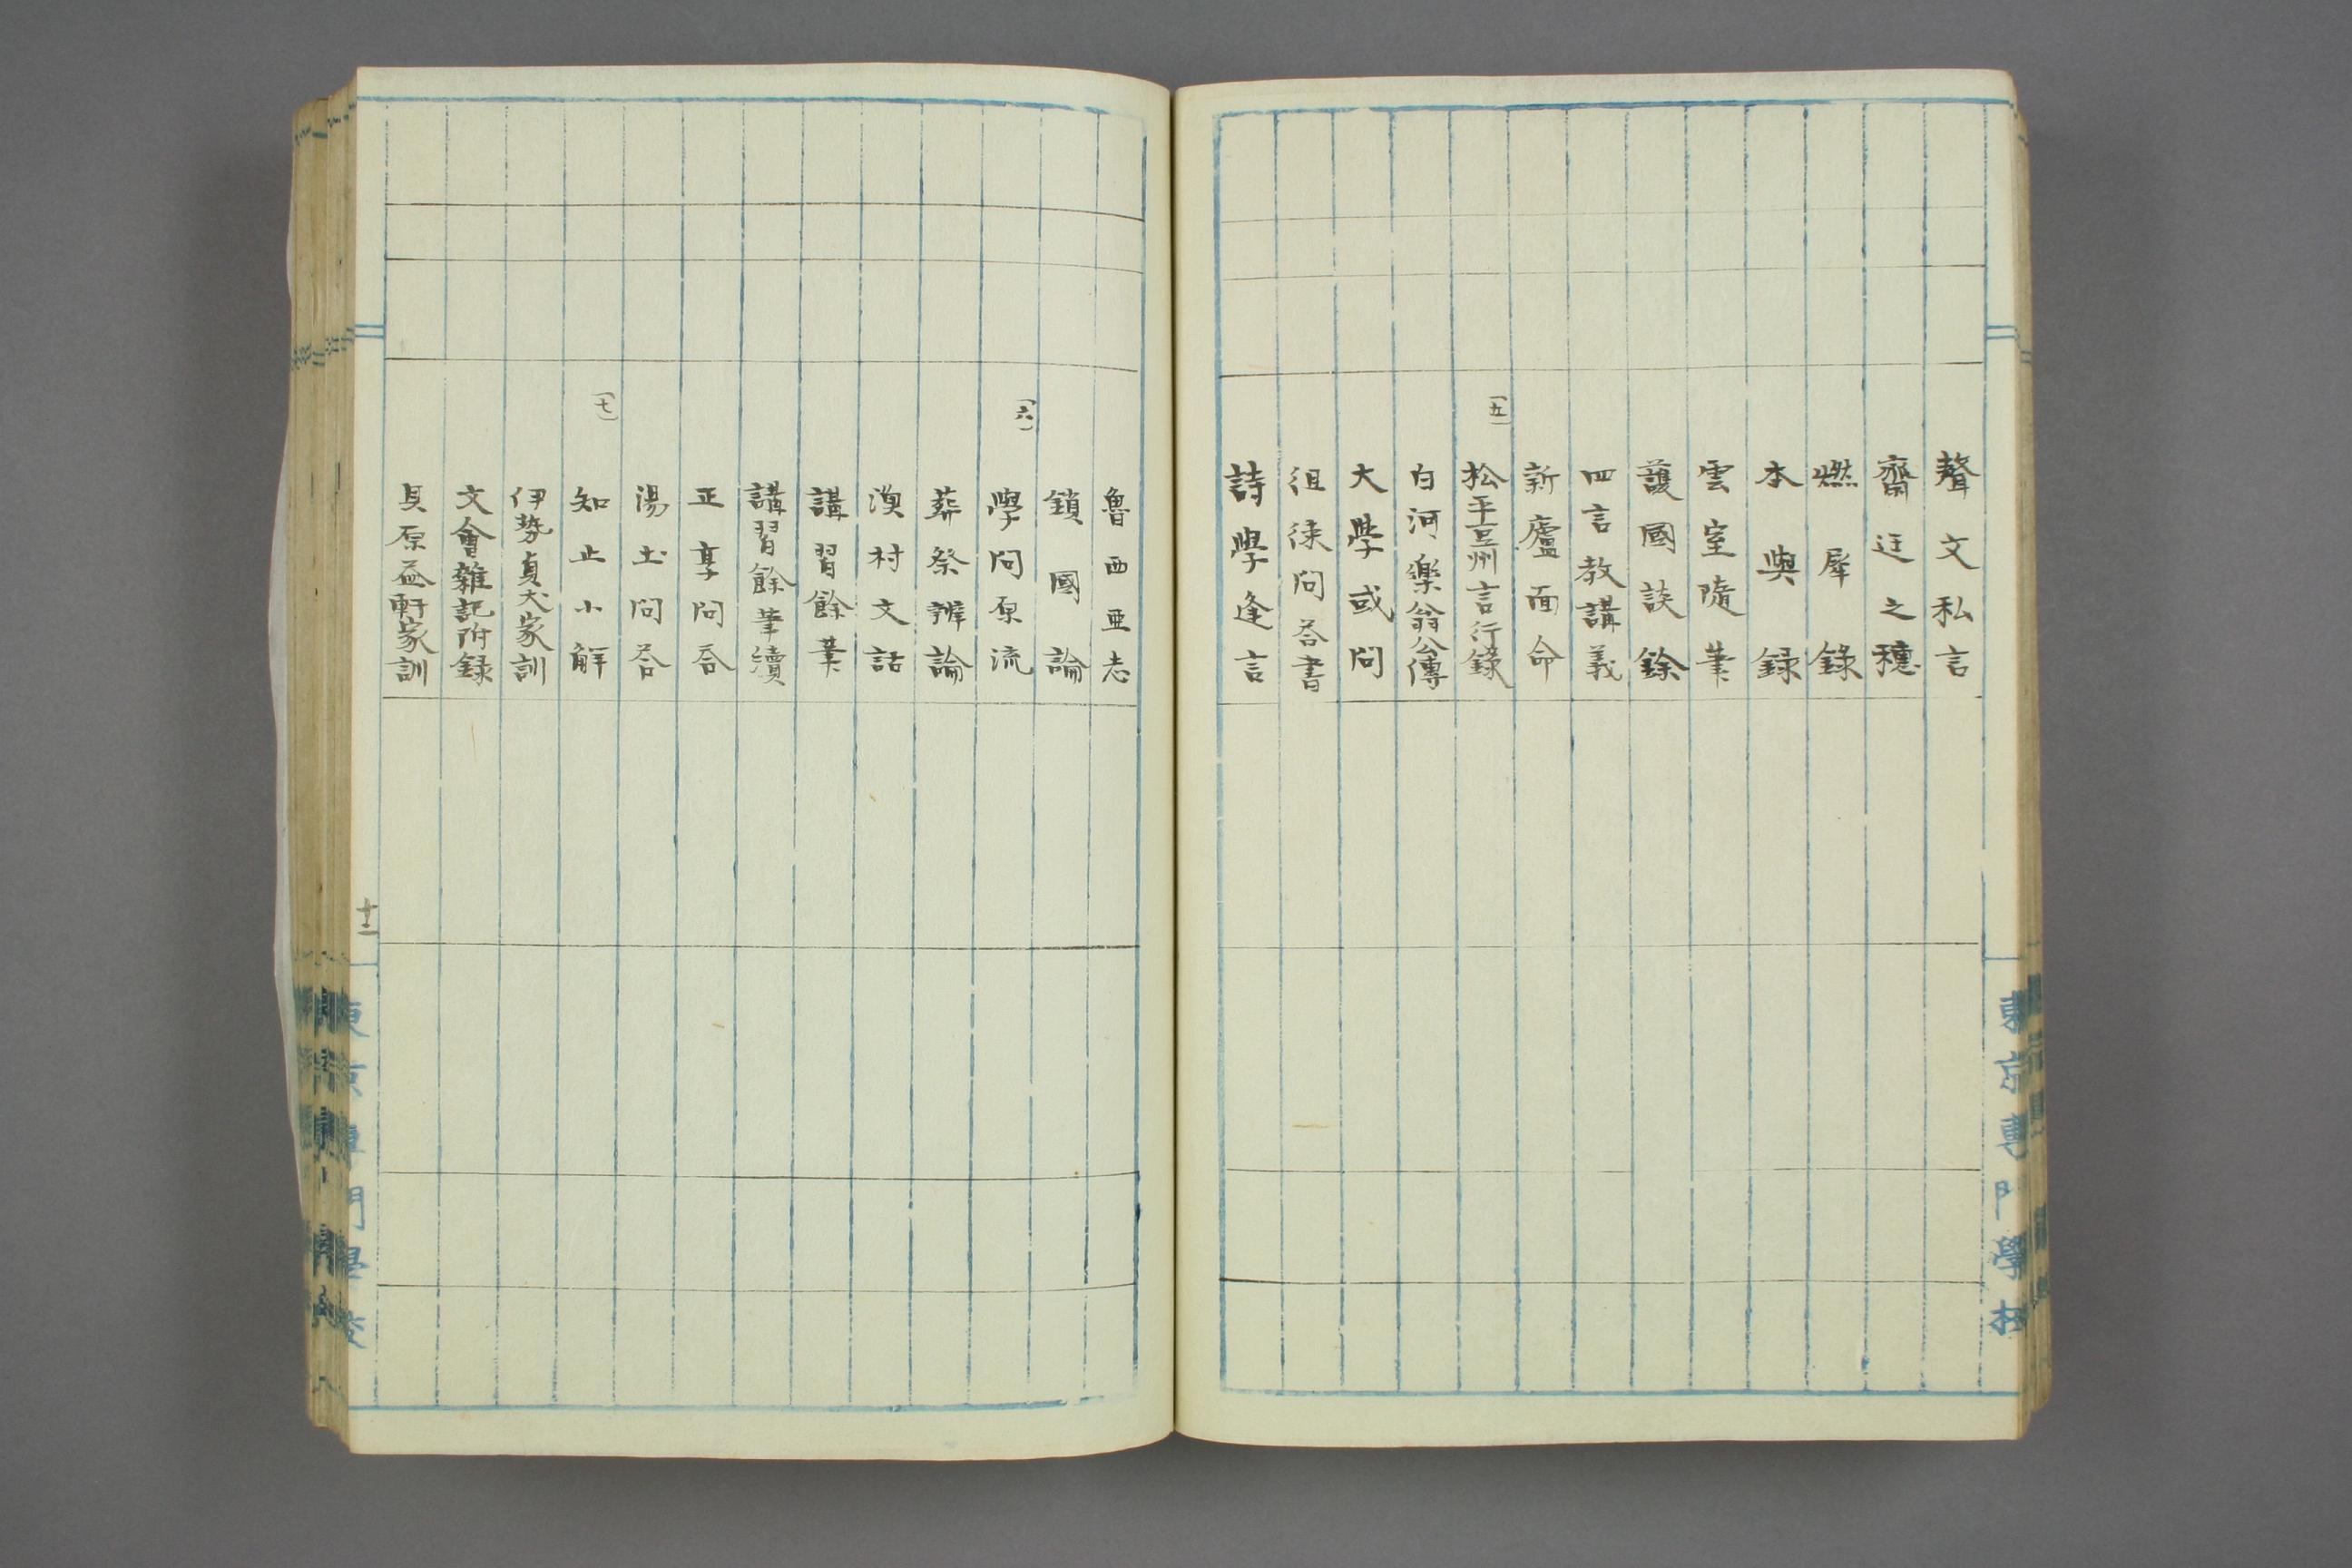 聱文私言
齋迂之穂
燃犀錄
本與録
雲室隨筆
護國談餘
四言教講義
新廬面命
(五)
松平豆州言行錄
白河樂翁公傳
大學或問
徂徠問荅書
詩學逢言
魯西亜志
鎖國論
(六)
學問原流
葬祭辨論
漁村文話
講習餘筆
講習餘筆續
正享問荅
湯土問荅
(七)
知止小解
伊勢貞丈家訓
文會雜記附録
貝原益軒家訓
十二
東京專門學校
東京專門學校